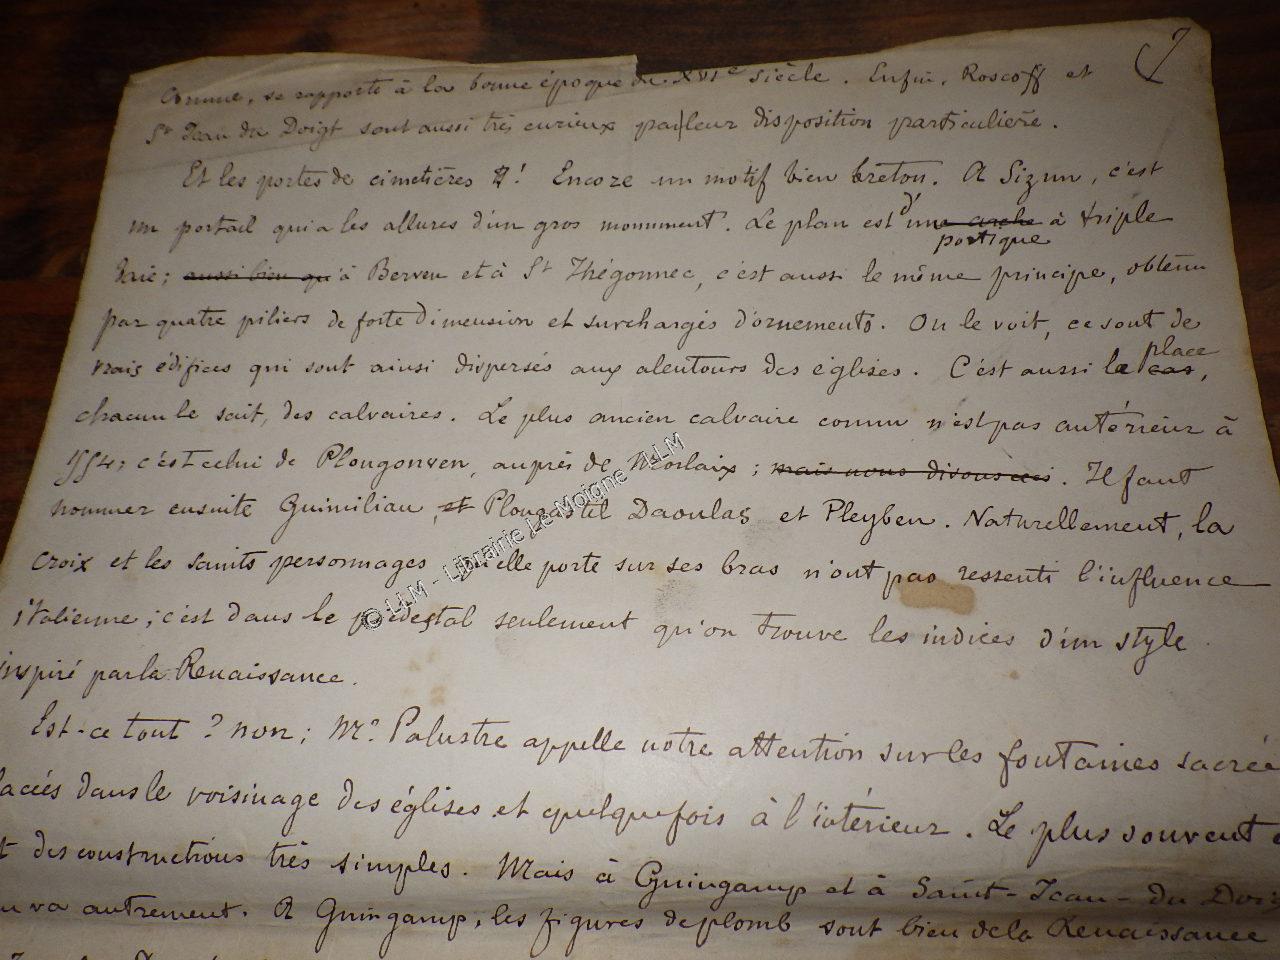 7
Comme, se rapporte à la bonne époque du XVIe siècle. Enfin, Roscoff et
St Jean du Doigt sont aussi très curieux par leur disposition particulière.
Et les portes de cimetières ! Encore un motif bien breton. A Sizun, c'est
un portail qui a les allures d'un gros monument. Le plan est d'une arche à triple
portique
baie; aussi bien qu'à Berven et à St Thégonnec, c'est aussi le même principe, obtenu
par quatre piliers de forte dimension et surchargés d'ornements. On le voit, ce sont de
vrais édifices qui sont ainsi dispersés aux alentours des églises. C'est aussi le cas,
place
chacun le sait, des calvaires. Le plus ancien calvaire connu n'est pas antérieur à
1554; c'est celui de Plougonven, auprès de Morlaix; mais nous disons ceci. Il faut
nommer ensuite Guimiliau, et Plougastel Daoulas et Pleyben. Naturellement, la
croix et les saints personnages qu'elle porte sur ses bras n'ont pas ressenti l'influence
italienne; c'est dans le piédestal seulement qu'on trouve les indices d'un style
inspiré par la Renaissance.
Est-ce tout ? non; Mr. Palustre appelle notre attention sur les fontaines sacrée
lacées dans le voisinage des églises et quelquefois à l'intérieur. Le plus souvent
t des constructions très simples. Mais à Guingamp et à Saint-Jean-du Doig
va autrement. A Guingamp, les figures de plomb sont bien de la Renaissance
© LLM - Librairie Le Moigne / LLM